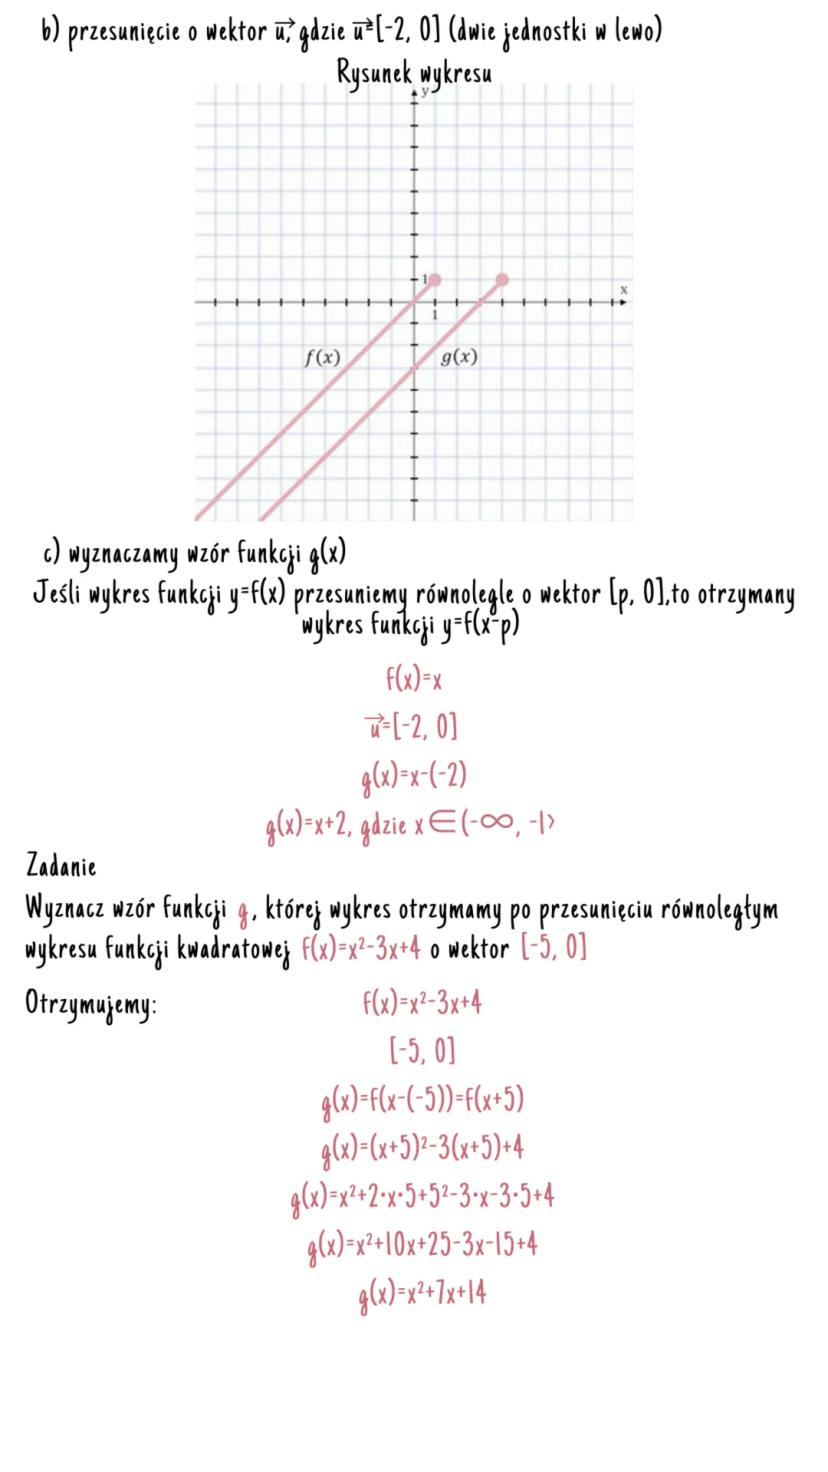 b) przesunięcie o wektor u⃗, gdzie u⃗=[-2, 0] (dwie jednostki w lewo)
Rysunek wykresu
y
1
x
1
f(x)
g(x)
c) wyznaczamy wzór funkcji g(x)
Jeśli wykres funkcji y=f(x) przesuniemy równolegle o wektor [p, 0],to otrzymany
wykres funkcji y=f(x-p)
f(x)=x
u⃗=[-2, 0]
g(x)=x-(-2)
g(x)=x+2, gdzie x∈(-∞, -1>
Zadanie
Wyznacz wzór funkcji g, której wykres otrzymamy po przesunięciu równoległym
wykresu funkcji kwadratowej f(x)=x²-3x+4 o wektor [-5, 0]
Otrzymujemy:
f(x)=x²-3x+4
[-5, 0]
g(x)=f(x-(-5))=f(x+5)
g(x)=(x+5)²-3(x+5)+4
g(x)=x²+2·x·5+5²-3·x-3·5+4
g(x)=x²+10x+25-3x-15+4
g(x)=x²+7x+14